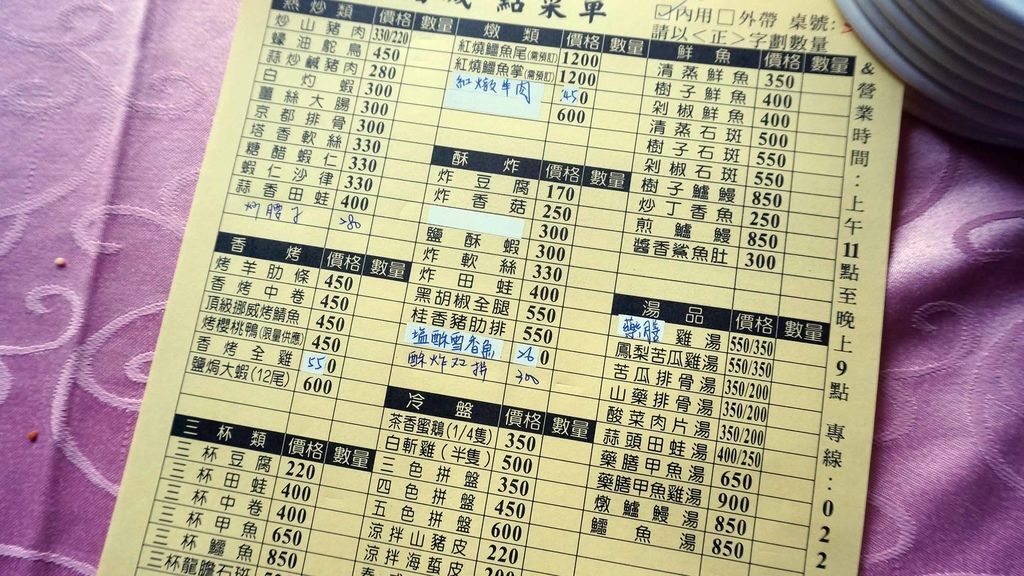 點菜單
☑內用□外帶 桌號:
請以<正>字劃數量
熱炒類 價格 數量
炒山豬肉 330/220
蠔油鴕鳥 450
蒜炒鹹豬肉 280
白灼蝦 300
薑絲大腸 300
京都排骨 300
塔香軟絲 330
糖醋蝦仁 330
蝦仁沙律 330
蒜香田蛙 400
炒腰子 280
香烤 價格 數量
烤羊肋條 450
香烤中卷 450
頂級挪威烤鯖魚 450
烤櫻桃鴨(限量供應) 450
香烤全雞 550
鹽焗大蝦(12尾) 600
三杯類 價格 數量
三杯豆腐 220
三杯田蛙 400
三杯中卷 400
三杯甲魚 650
三杯鱷魚 850
三杯龍膽石斑
燉類 價格 數量
紅燒鱷魚尾(需預訂) 1200
紅燒鱷魚掌(需預訂) 1200
紅燉牛肉 450
600
酥炸 價格 數量
炸豆腐 170
炸香菇 250
300
鹽酥蝦 300
炸軟絲 330
炸田蛙 400
黑胡椒全腿 550
桂香豬肋排 550
塩酥丁香魚 260
酥炸双拼 300
冷盤 價格 數量
茶香蜜鵝(1/4隻) 350
白斬雞(半隻) 500
三色拼盤 350
四色拼盤 450
五色拼盤 600
涼拌山豬皮 220
涼拌海蜇皮 200
鮮魚 價格 數量
清蒸鮮魚 350
樹子鮮魚 400
剁椒鮮魚 400
清蒸石斑 500
樹子石斑 550
剁椒石斑 550
樹子鱸鰻 850
炒丁香魚 250
煎鱸鰻 850
醬香鯊魚肚 300
湯品 價格 數量
藥膳雞湯 550/350
鳳梨苦瓜雞湯 550/350
苦瓜排骨湯 350/200
山藥排骨湯 350/200
酸菜肉片湯 350/200
蒜頭田蛙湯 400/250
藥膳甲魚湯 650
藥膳甲魚雞湯 900
燉鱸鰻湯 850
鱷魚湯 850
&營業時間:上午11點至晚上9點 專線:022